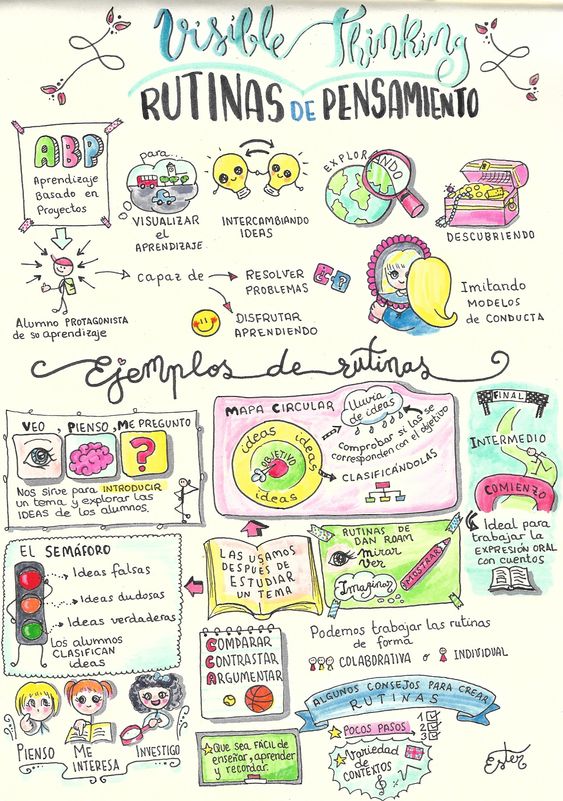 Visible Thinking
RUTINAS DE PENSAMIENTO
ABP
Aprendizaje
Basado en
Proyectos
para...
VISUALIZAR
el
APRENDIZAJE
INTERCAMBIANDO
IDEAS
EXPLORANDO
DESCUBRIENDO
Alumno PROTAGONISTA
de su aprendizaje
capaz de
RESOLVER
PROBLEMAS
DISFRUTAR
APRENDIENDO
Imitando
MODELOS
de CONDUCTA
Ejemplos de rutinas
VEO, PIENSO, ME PREGUNTO
?
Nos sirve para INTRODUCIR
un tema y explorar las
IDEAS de los alumnos.
MAPA CIRCULAR
lluvia
de ideas
ideas
ideas
ideas
OBJETIVO
comprobar si las
se
corresponden con el objetivo
CLASIFICÁNDOLAS
FINAL
INTERMEDIO
COMIENZO
Ideal para
trabajar la
EXPRESIÓN ORAL
con cuentos
EL SEMÁFORO
Ideas falsas
Ideas dudosas
Ideas verdaderas
Los alumnos
CLASIFICAN
ideas
LAS USAMOS
DESPUÉS DE
ESTUDIAR
UN TEMA
RUTINAS DE
DAN ROAM
mirar
ver
Imaginar
MOSTRAR
COMPARAR
CONTRASTAR
ARGUMENTAR
Podemos trabajar las rutinas
de forma
COLABORATIVA o INDIVIDUAL
PIENSO
ME
INTERESA
INVESTIGO
ALGUNOS CONSEJOS PARA CREAR
RUTINAS
POCOS PASOS
1
2
3
Que sea FÁCIL de
enseñar, aprender
y recordar.
Variedad
de
CONTEXTOS
Ester